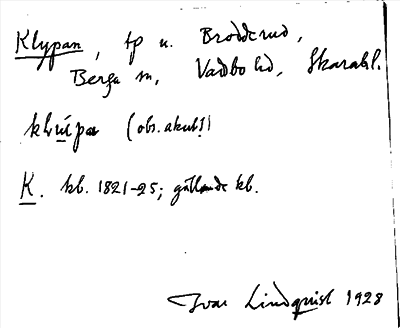 Klypan, tp u. Brodderud,
Berga sn, Vadsbo hd, Skarabl.
klúpa (obs. akut!)
K. kb. 1821-25; gällande kb.
Ivar Lindquist 1928